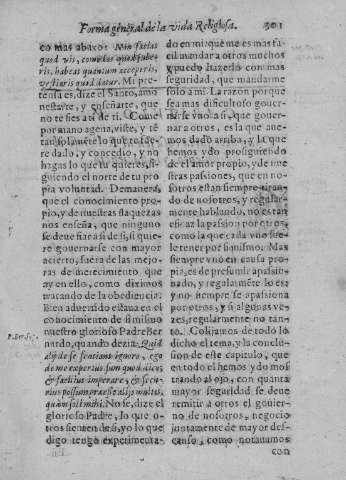 Forma general de la vida Religiosa. 301
co mas abaxo: Non facias
quod vis, comedas quod jube-
ris, habeas quantum acceperis,
vestiaris quod datur. Mi pre-
tensa es, dize el Santo, amo
nestarte, y enseñarte, que
no te fies a ti de ti. Come
por mano agena, viste, y tẽ
tan solamẽte lo que te fue-
re dado, y concedio, y no
hagas lo que tu quieres, si-
guiendo el norte de tu pro
pia voluntad. Demanera,
que el conocimiento pro-
pio, y de nuestras flaquezas
nos enseña, que ninguno
se deue fiar a si de si, si quie
re gouernarse con mayor
acierto, fuera de las mejo-
ras de merecimiento que
ay en ello, como diximos
tratando de la obediencia.
Bien aduertido estaua en el
conocimiento de si mismo
nuestro glorioso Padre Ber
nardo, quando dezia: Quid
alij de se sentiant ignoro, ego
de me expertus sum quod dico:
& facilius imperare, & secu-
rius possum præesse alijs multis,
quàm soli mihi. No se, dize el
glorioso Padre, lo que o-
tros sienten de si, yo lo que
digo tengo experimenta-
do en mi: que me es mas fa
cil mandar a otros muchos
y puedo hazerlo con mas
seguridad, que mandarme
solo a mi. La razon porque
sea mas dificultoso gouer-
narse vno a si, que gouer-
nar a otros, es la que aue-
mos dado arriba, y la que
hemos ydo prosiguiendo
de el amor propio, y de nue
stras passiones, que en no-
sotros estan siempre tiran-
do de nosotros, y regular-
mente hablando, no es tan
eficaz la passion por otros,
como la que cada vno sue-
le tener por si mismo. Mas
siempre vno en causa pro-
pia, es de presumir apassio-
nado, y regularmẽte lo es:
y no siempre se apassiona
por otros, y si algunas ve-
zes, regularmente no tan-
to. Colijamos de todo lo
dicho el tema, y la conclu-
sion de este capitulo, que
en todo el hemos ydo mos
trando al ojo, con quanta
mayor seguridad se deue
remitir a otros el gouier-
no de nosotros, negocio
juntamente de mayor des-
canso, como notauamos
con